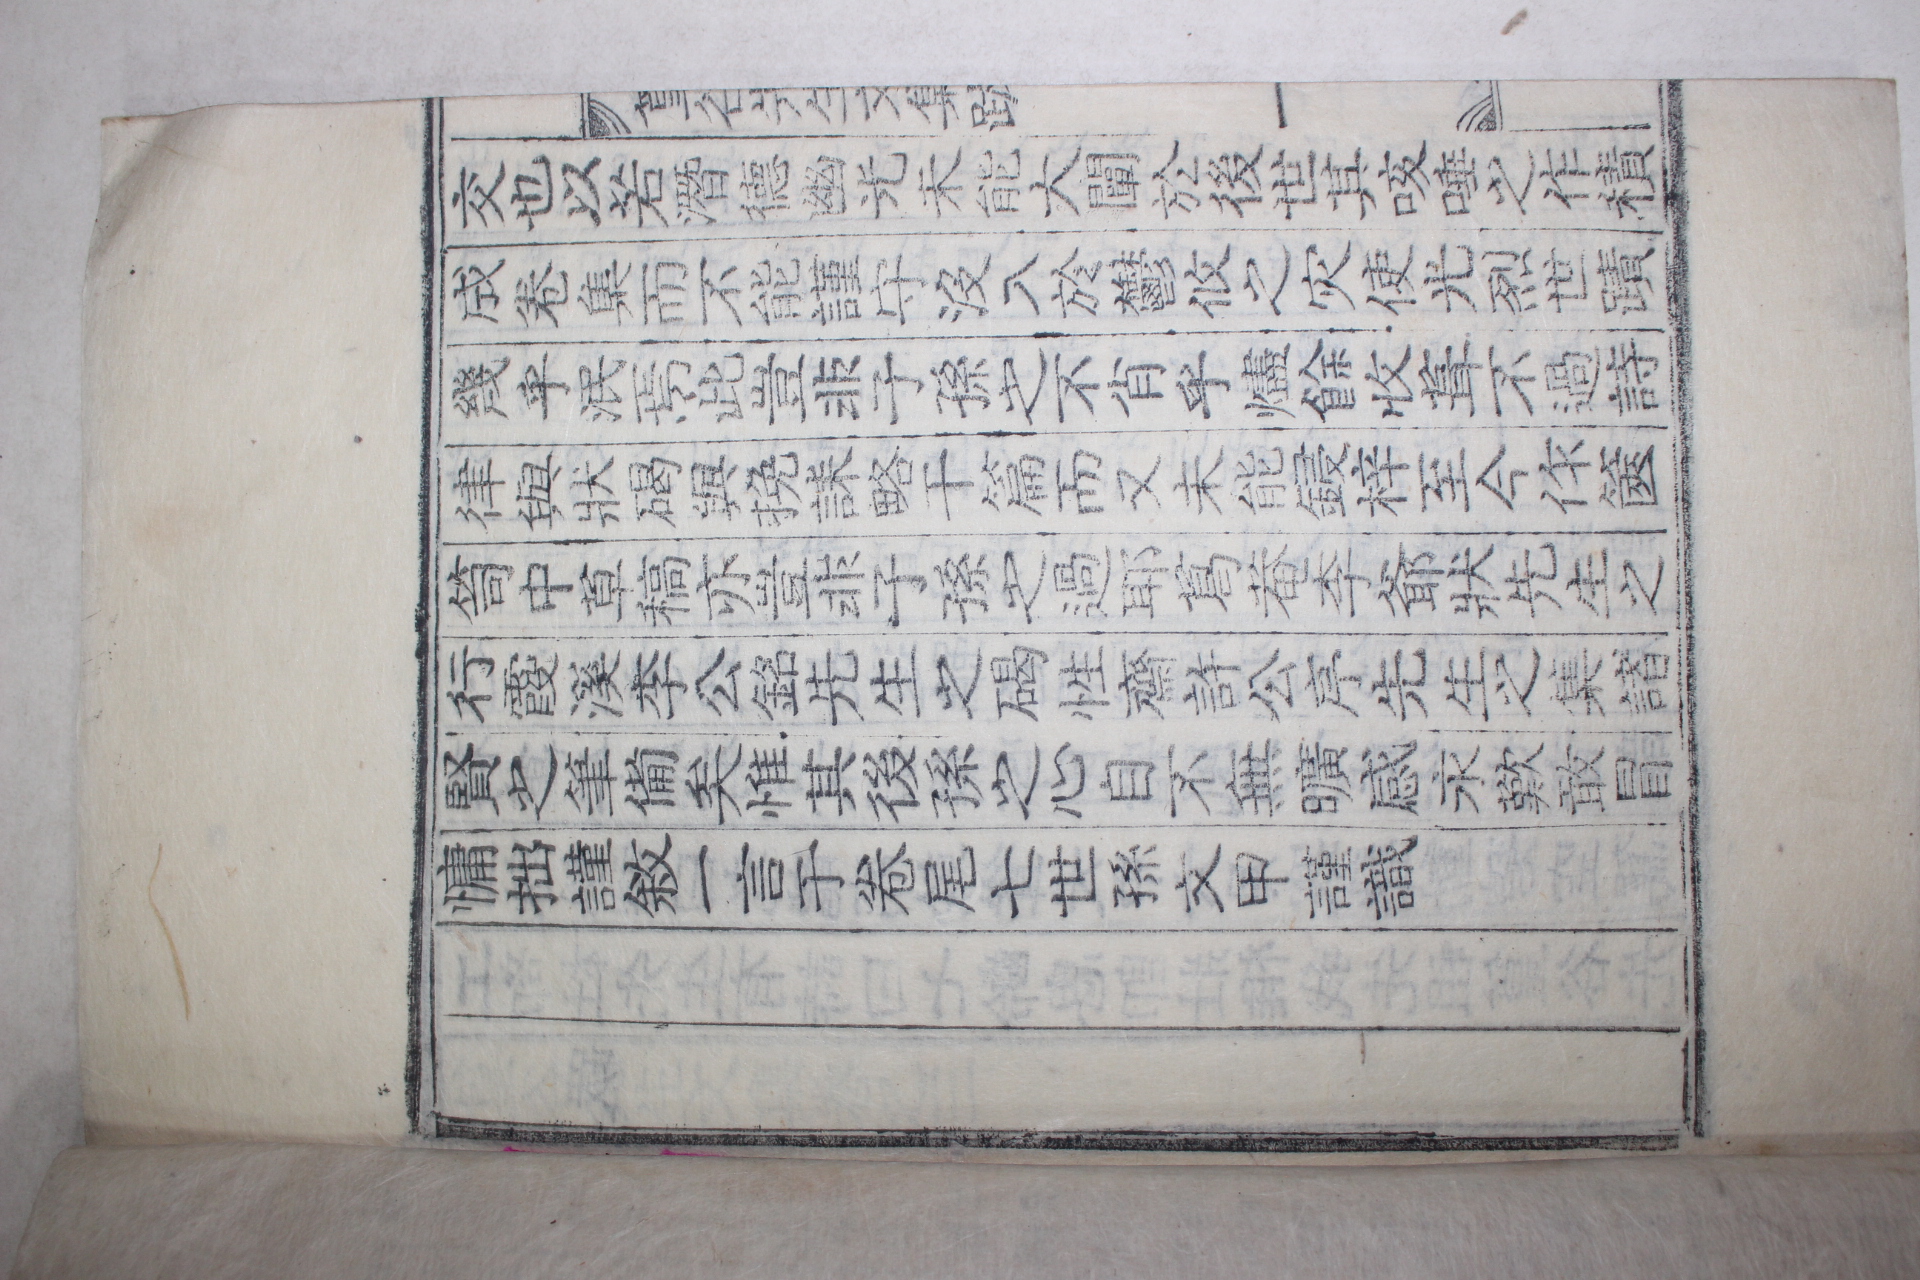 交也以若潛德幽光未能大闡於後世其咳唾之作積
成卷集而不能謹守沒入於鬱攸之灾使光烈世蹟
幾乎泯焉此豈非子孫之不肖乎燼餘收葺不過詩
律與狀碣與挽誄略干篇而又未能鋟梓至今作篋
笥中草稿亦豈非子孫之過耶葛菴李爺狀先生之
行霞溪李公銘先生之碣性齋許公序先生之集諸
賢之筆備矣惟其後孫之心自不無曠感永歎敢冒
慵拙謹敘一言于卷尾七世孫文甲謹識
谷先生文集跋
一